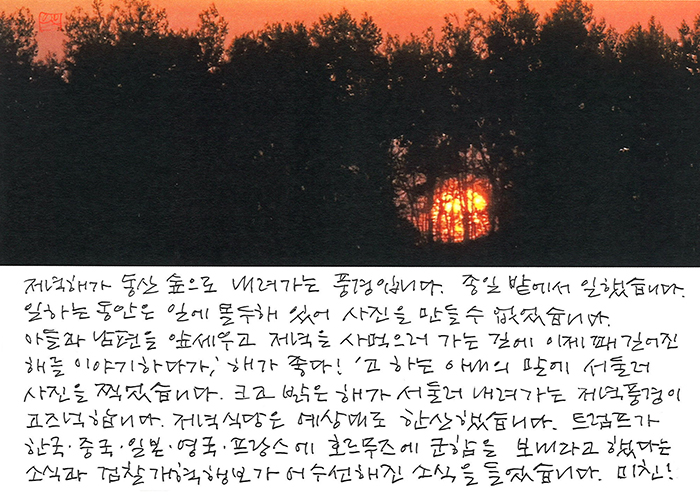 저녁해가 동산 숲으로 내려가는 풍경입니다. 종일 밭에서 일했습니다.
일하는 동안은 일에 몰두해 있어 사진을 만들 수 없었습니다.
아들과 남편을 앞세우고 저녁을 사먹으러 가는 길에 이제 꽤 길어진
해를 이야기하다가, '해가 좋다!' 고 하는 아내의 말에 서둘러
사진을 찍었습니다. 크고 밝은 해가 서둘러 내려가는 저녁풍경이
고즈넉합니다. 저녁식당은 예상대로 한산했습니다. 트럼프가
한국·중국·일본·영국·프랑스에 호르무즈에 군함을 보내라고 했다는
소식과 검찰개혁행보가 어수선해진 소식을 들었습니다. 미친!